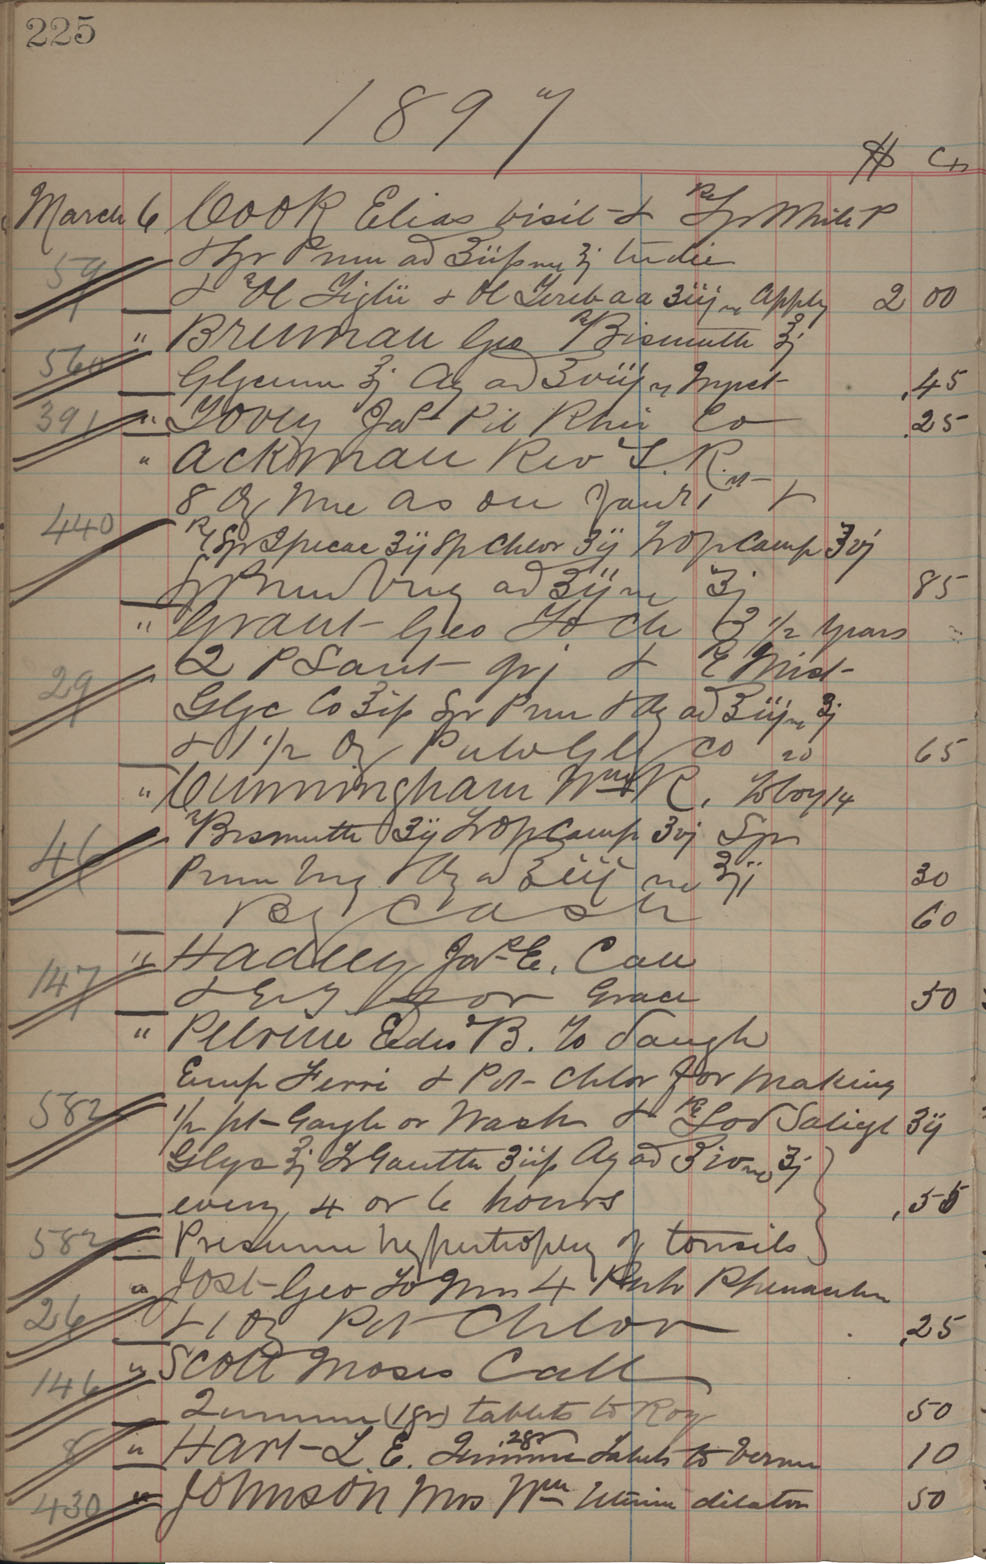 225
1897
$ Cts
March 6 Cook Elias visit & Rx Syr White P
59 & Syr Prun ad ℥iiss ʒj
& Ol Tiglii & Ol Tereb aa ʒiij Apply 2 00
" Brennan Geo Rx Bismuth ʒj
560 Glycerine ℥j Aq ad ℥viij Inject .45
391 " Tovey Jas Pil Rhei Co .25
" Ackman Rev S. R.
8 Oz Mre as on Jan &
440 Rx Syr Ipecac ʒij Sp Chlor ʒij Tr Op Camp ʒvj
Syr Prun Virg ad ℥iij ʒj 85
" Grant Geo To Ch 3 1/2 years
29 2 P Sant grj & Rx Mist
Glyc Co ℥iss Syr Prun & Aq ad ℥iij ʒj
& 1 1/2 Oz Pulv Gly Co 20 65
" Cunningham Wm R. To boy 14
46 Rx Bismuth ʒij Tr Op Camp ʒvj Syr
Prun Virg & Aq ad ℥iij ʒij 30
By Cash 60
147 " Hadley Jas E. Call
& for Grace 50
" Pelrine Edw B. To daugh
Emp Ferri & Pot Chlor for making
582 1/2 pt Gargle or Wash & Rx Sod Salicyl ʒij
Glyc ℥j Tr Gauth ʒiiss Aq ad ℥iv ʒj
every 4 or 6 hours .55
582 Presume hypertrophy of tonsils
" Jost Geo To Mrs 4 Phenacetin
26 & 1 Oz Pot Chlor .25
146 " Scott Moses Call
Quinine (1gr) tablets to Roy 50
8 " Hart L. E. Quinine 2gr tablets to Vernie 10
430 " Johnson Mrs Wm Uterine dilator 50